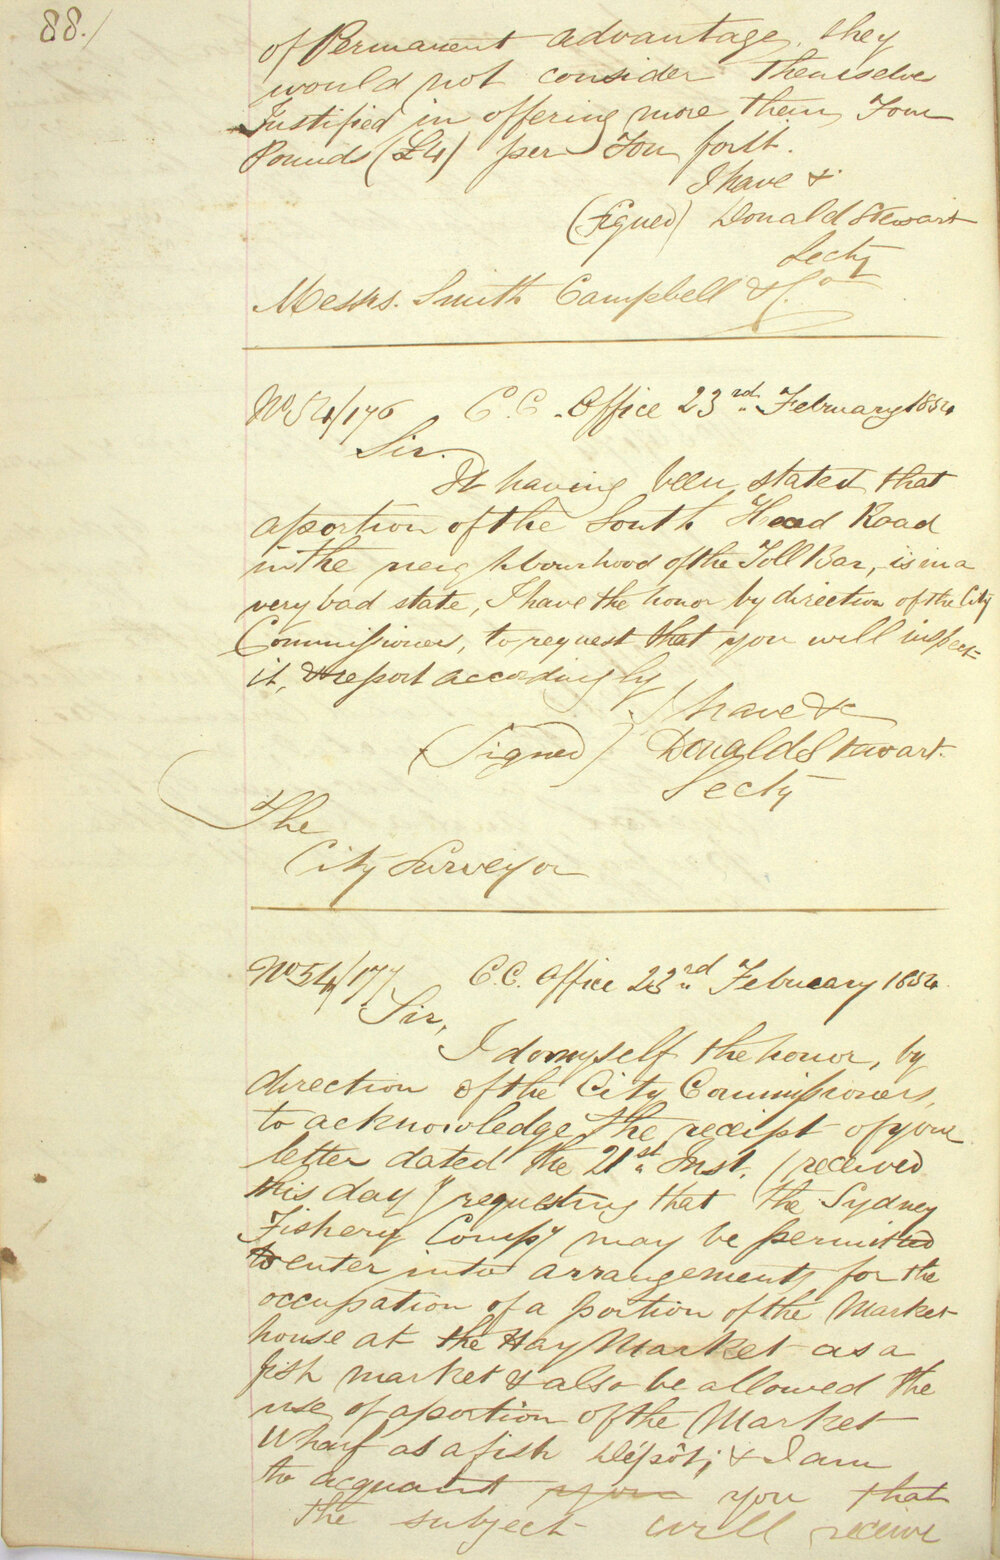 88./
of Permanent advantage, they
would not consider themselve
Justified in offering more than Four
Pounds (£4) per Ton for it.
I have &
(Signed) Donald Stewart
Secty
Messrs. Smith Campbell & Co
No 54/176 C.C. Office 23rd February 1854
Sir.
It having been stated that
a portion of the South Head Road
in the neighbourhood of the Toll Bar, is in a
very bad state, I have the honor by direction of the City
Commissioners, to request that you will inspect
it, & report accordingly
I have &c
(Signed) Donald Stewart.
Secty
The
City Surveyor
No 54/177 C.C. Office 23rd February 1854
Sir,
I do myself the honor, by
direction of the City Commissioners,
to acknowledge the receipt of your
letter dated the 21st Inst. (received
this day) requesting that the Sydney
Fishery Compy may be permitted
to enter into arrangements for the
occupation of a portion of the Market
house at the Hay Market as a
fish market & also be allowed the
use of a portion of the Market
Wharf as a fish Depôt; & I am
to acquaint you you that
the subject will receive